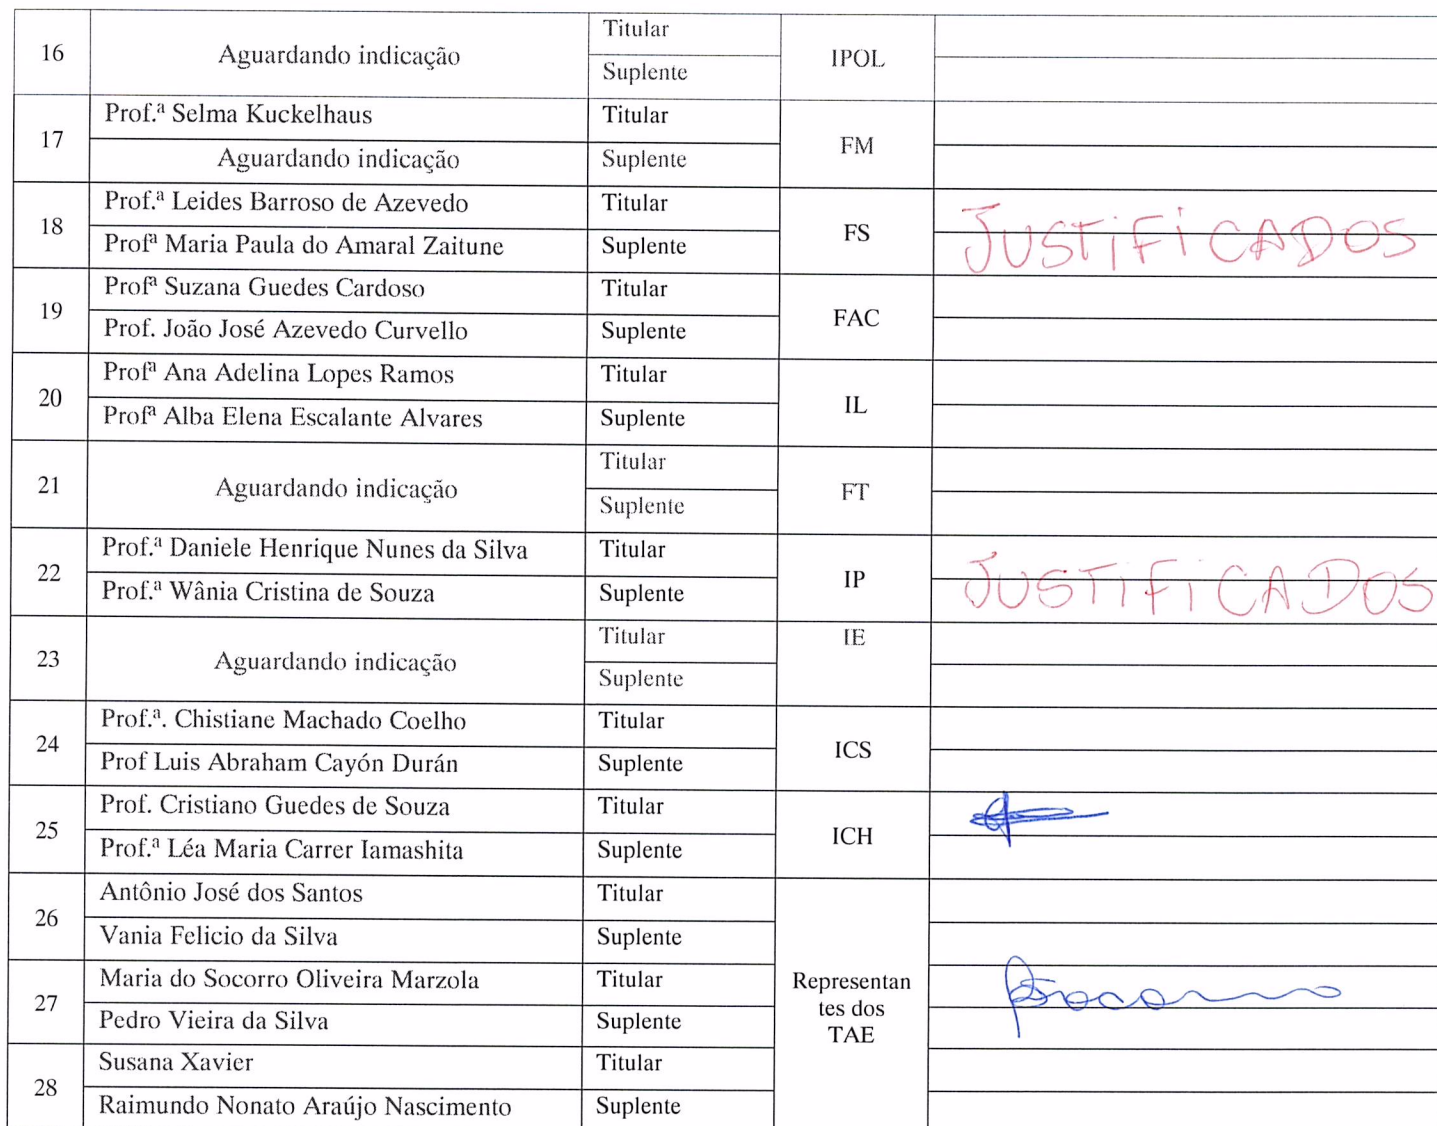 16 Aguardando indicação Titular IPOL
Suplente
17 Prof.ª Selma Kuckelhaus Titular FM
Aguardando indicação Suplente
18 Prof.ª Leides Barroso de Azevedo Titular FS JUSTIFICADOS
Profª Maria Paula do Amaral Zaitune Suplente
19 Profª Suzana Guedes Cardoso Titular FAC
Prof. João José Azevedo Curvello Suplente
20 Profª Ana Adelina Lopes Ramos Titular IL
Profª Alba Elena Escalante Alvares Suplente
21 Aguardando indicação Titular FT
Suplente
22 Prof.ª Daniele Henrique Nunes da Silva Titular IP JUSTIFICADOS
Prof.ª Wânia Cristina de Souza Suplente
23 Aguardando indicação Titular IE
Suplente
24 Prof.ª. Chistiane Machado Coelho Titular ICS
Prof Luis Abraham Cayón Durán Suplente
25 Prof. Cristiano Guedes de Souza Titular ICH
Prof.ª Léa Maria Carrer Iamashita Suplente
26 Antônio José dos Santos Titular
Vania Felicio da Silva Suplente
27 Maria do Socorro Oliveira Marzola Titular Representan
tes dos
Pedro Vieira da Silva Suplente TAE
28 Susana Xavier Titular
Raimundo Nonato Araújo Nascimento Suplente